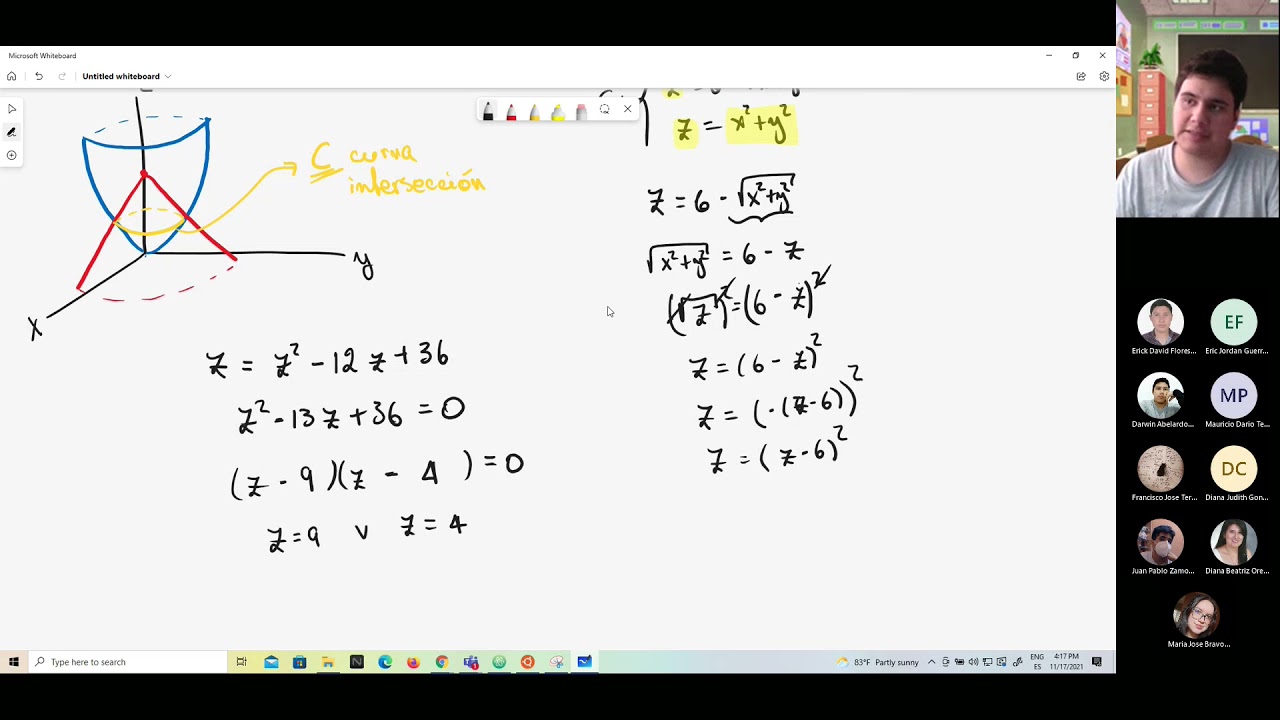 Microsoft Whiteboard
Untitled whiteboard
z = x²+y²
C curva
intersección
y
x
z = 6 - √x²+y²
√x²+y² = 6 - z
(√z)² = (6 - z)²
z = z² - 12z + 36
z = (6 - z)²
z² - 13z + 36 = 0
z = (-(z-6))²
(z - 9)(z - 4) = 0
z = (z-6)²
z = 9 v z = 4
Erick David Flores...
EF
Eric Jordan Guerr...
Darwin Abelardo...
MP
Mauricio Dario Te...
Francisco Jose Ter...
DC
Diana Judith Gon...
Juan Pablo Zamo...
Diana Beatriz Ore...
Maria Jose Bravo...
Type here to search
83°F Partly sunny
ENG
ES
4:17 PM
11/17/2021